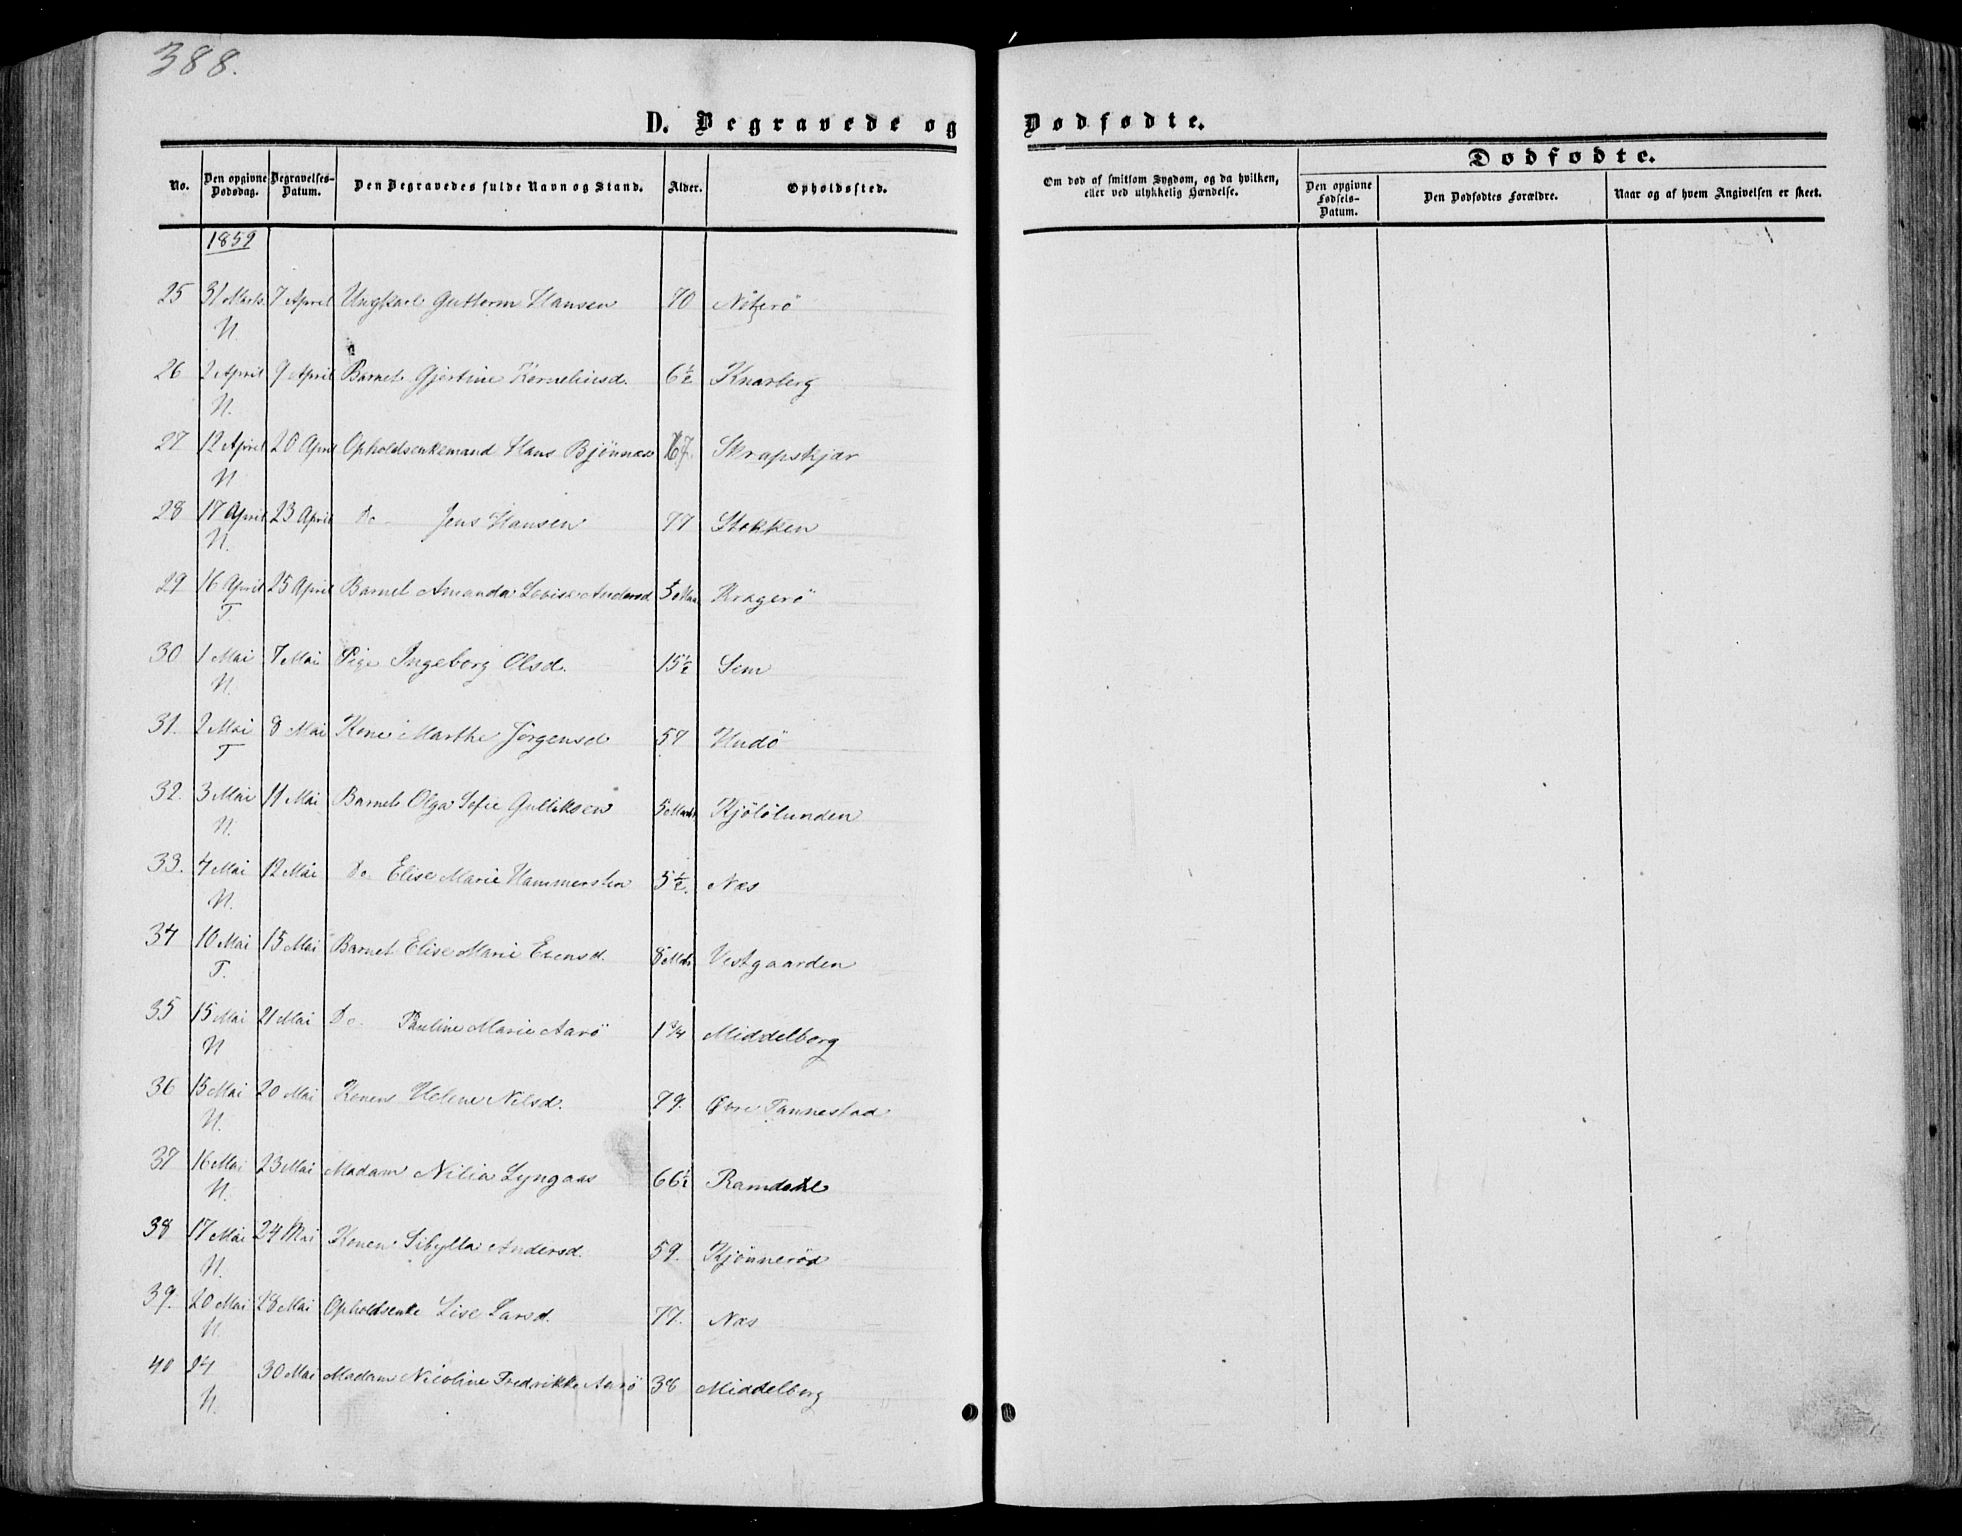 388.
D. Begravede og Dødfødte.
No. Den opgivne Dødsdag. Begravelses-Datum. Den Begravedes fulde Navn og Stand. Alder. Opholdssted. Om død af smitsom Sygdom, og da hvilken, eller ved ulykkelig Hændelse. Dødfødte. Den opgivne Fødsels-Datum. Den Dødfødtes Forældre. Naar og af hvem Angivelsen er skeet.
1859
25 31 Marts 7 April Ungkarl Guttorm Hansen 70 Nøterö
N.
26 2 April 9 April Barnet Gjertine Korneliusd. 6½ Knarberg
N.
27 12 April 20 April Opholdsenkemand Hans Bjönnæs 67. Skrapskjær
N
28 17 April 23 April Do Jens Hansen 77 Stokken
N.
29 16 April 25 April Barnet Amanda Lovise Andersd Kragerö
T.
30 1 Mai 7 Mai Pige Ingeborg Olsd. 15½ Sem
N.
31. 2 Mai 8 Mai Kone Marthe Jörgensd 57 Hudö
T
32. 3 Mai 11 Mai Barnet Olga Sofie Gulliksen Kjölölunden
N.
33. 4 Mai 12 Mai Do. Elise Marie Hammersten 5½. Næs
N.
34 10 Mai 15 Mai Barnet Elise Marie Evensd. Vestgaarden
T.
35 15 Mai 21 Mai Do. Pauline Marie Aarö 1¾ Middelborg
N
36 15 Mai 20 Mai Konens Helene Nilsd. 79. Øvre Tannestad
N.
37 16 Mai 23 Mai Madam Nilia Lyngaas 66½ Ramdahl
N.
38 17 Mai 24 Mai Konen Sibylla Andersd. 59. Kjönneröd
N.
39. 20 Mai 28 Mai Opholdsenke Lise Larsd. 77. Næs
N.
40 24 30 Mai Madam Nicoline Fredrikke Aarö 38 Middelborg
N.